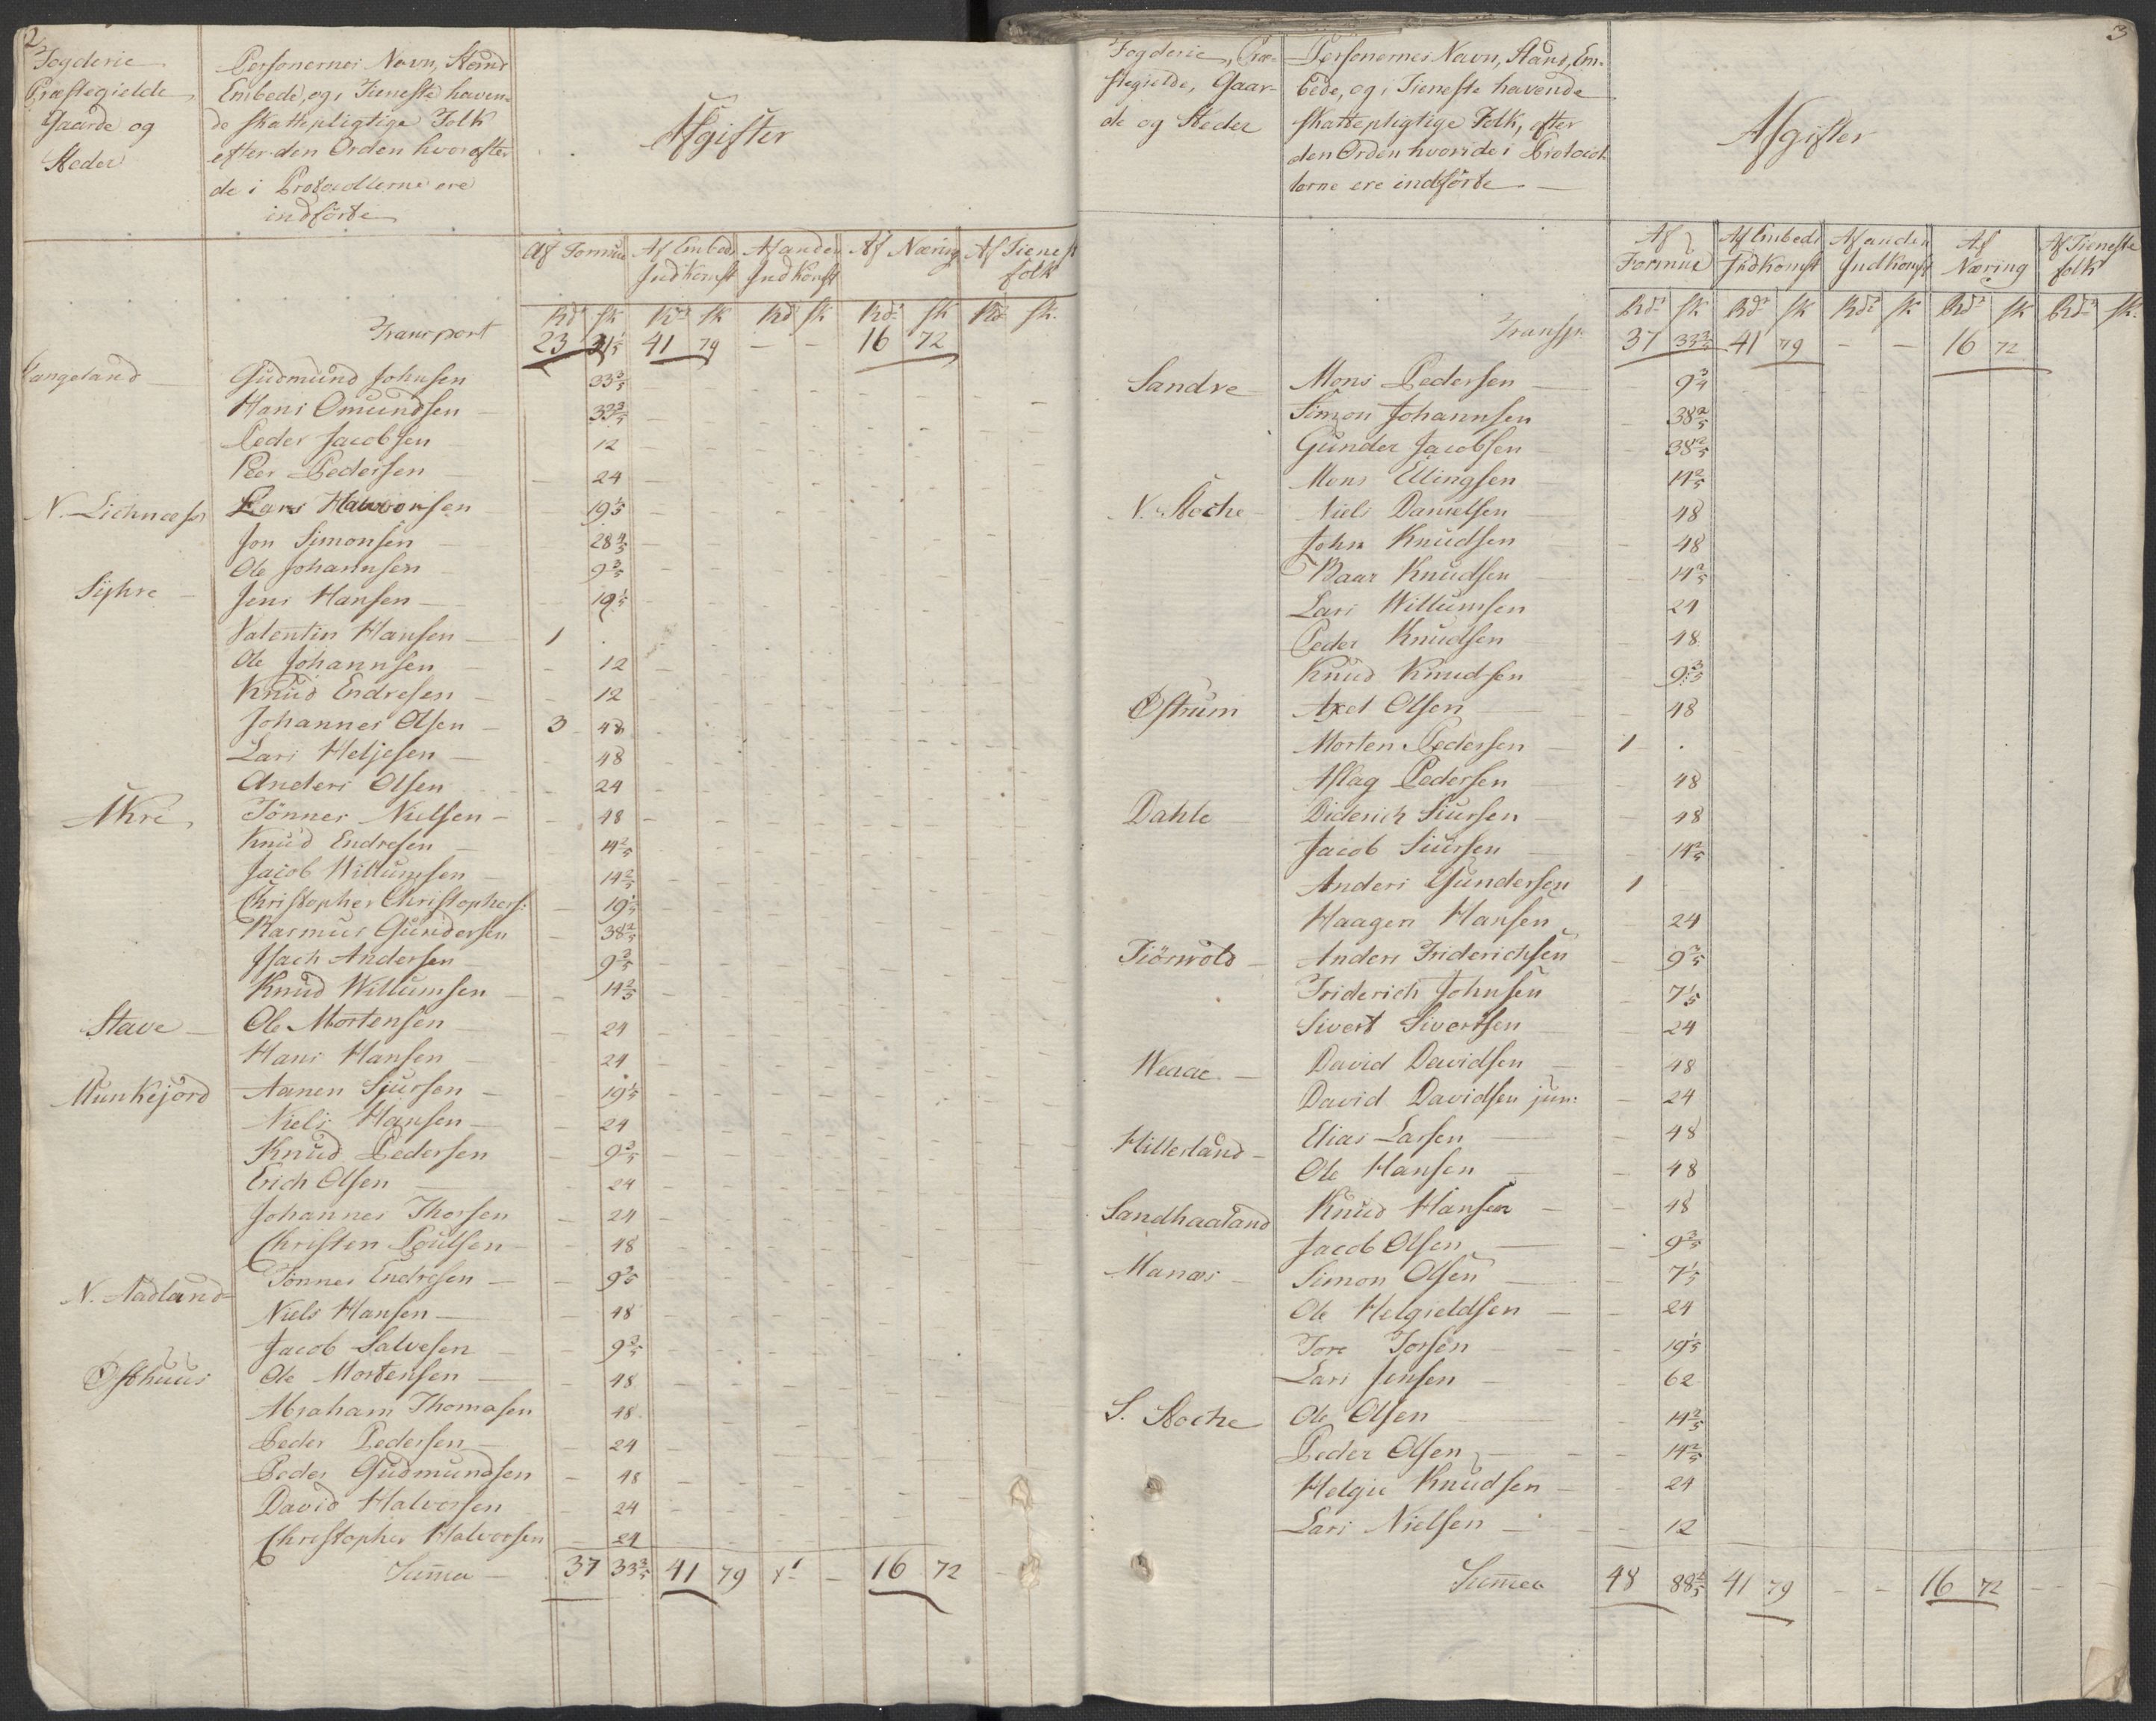 2
Fogderie
Præstegielde
Gaarde og
Steder
Personernes Navn, Stand
Embede, og i Tieneste haven-
de skattepligtige Folk
efter den Orden hvorefter
de i Protocollerne ere
indførte
Afgifter
Af Formue Af Embeds Indkomst Af anden Indkomst Af Næring Af Tienest folk
Rdr sk Rdr sk Rdr sk Rdr sk Rdr sk.
Transport 23 21 1/5 41 79 — — 16 72
Langeland Gudmund Johnsen 33 3/5
Hans Omundsen 33 3/5
Peder Jacobsen 12
Peer Pedersen 24
N. Lichnæss Lars Halvorsen 19 1/5
Jon Simonsen 28 4/5
Ole Johannsen 9 3/5
Syhre Jens Hansen 19 1/5
Valentin Hansen 1 .
Ole Johannsen 12
Knud Endresen 12
Johannes Olsen 3 48
Lars Heljesen 48
Anders Olsen 24
Akre Tönnes Nielsen 48
Knud Endresen 14 2/5
Jacob Willumsen 14 2/5
Christopher Christophers: 19 1/5
Rasmus Gundersen 38 2/5
Isach Andersen 9 3/5
Knud Willumsen 14 2/5
Stave Ole Mortensen 24
Hans Hansen 24
Munkejord Aanen Sjursen 19 1/5
Niels Hansen 24
Knud Pedersen 9 3/5
Erich Olsen 24
Johannes Thorsen 24
Christen Poulsen 48
N. Aadland Tönnes Endresen 9 3/5
Niels Hansen 48
Jacob Salvesen 9 3/5
Østhuus Ole Mortensen 48
Abraham Thomasen 48
Peder Pedersen 24
Peder Gudmundsen 48
David Halvorsen 24
Christopher Halvorsen 24
Summa 37 33 3/5 41 79 — 16 72
3
Fogderie, Præ-
stegielde, Gaar-
de og Steder
Personernes Navn, Stand, Em-
bede, og i Tieneste havende
skattepligtige Folk, efter
den Orden hvori de i Protocol
lerne ere indførte
Afgifter
Af Formue Af Embeds Indkomst Af anden Indkomst Af Næring Af Tieneste folk
Rdr sk Rdr sk Rdr sk Rdr sk Rdr sk.
Transp. 37 33 3/5 41 79 — — 16 72
Sandve Mons Pedersen 9 3/4
Simon Johannsen 38 2/5
Gunder Jacobsen 38 2/5
Mons Ellingsen 14 2/5
N. Stoche Niels Danielsen 48
John Knudsen 48
Baar Knudsen 14 2/5
Lars Willumsen 24
Peder Knudsen 48
Knud Knudsen 9 3/5
Østrum Axel Olsen 48
Morten Pedersen 1 .
Aslag Pedersen 48
Dahle Diderich Siursen 48
Jacob Siursen 14 2/5
Anders Gundersen 1
Haagen Hansen 24
Tiörwold Anders Friderichsen 9 3/5
Friderich Johnsen 7 1/5
Sivert Sivertsen 24
Weaae David Davidsen 48
David Davidsen jun: 24
Hillesland Elias Larsen 48
Ole Hansen 48
Sandhaaland Knud Hansen 48
Jacob Olsen 9 3/5
Manæs Simon Olsen 7 1/5
Ole Helgieldsen 24
Tore Torsen 19 1/5
Lars Jensen 62
S. Stoche Ole Olsen 14 2/5
Peder Olsen 14 2/5
Helgie Knudsen 24
Lars Nielsen 12
Summa 48 88 2/5 41 79 — — 16 72